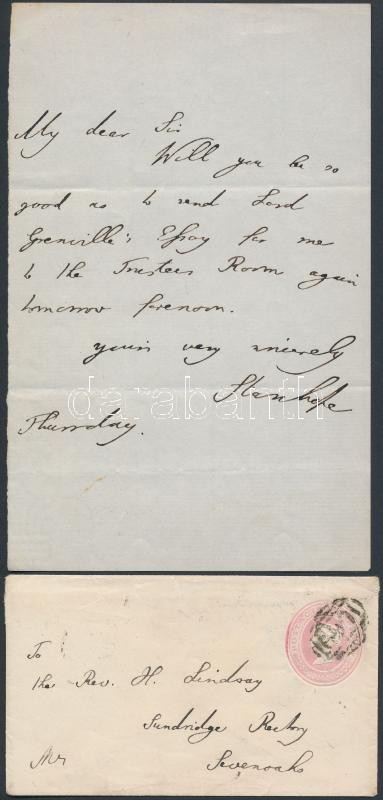 My dear Sir
Will you be so
good as to send Lord
Grenville's Essay for me
to the Trustees Room again
tomorrow forenoon.
yours very sincerely
Stanhope
Thursday.
darabanth
To
the Rev. H. Lindsay
Sundridge Rectory
Sevenoaks